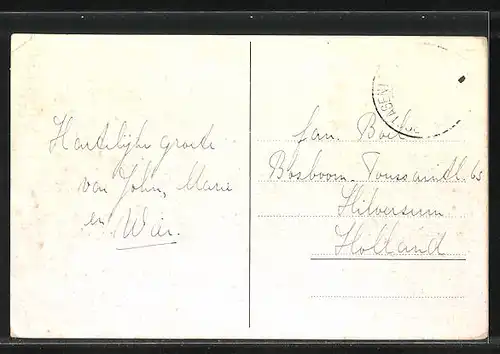 Hartelijke groete
van John, Marie
en Wär.
fam. Boele
Bosboom-Toussaintl. 65
Hilversum
Holland